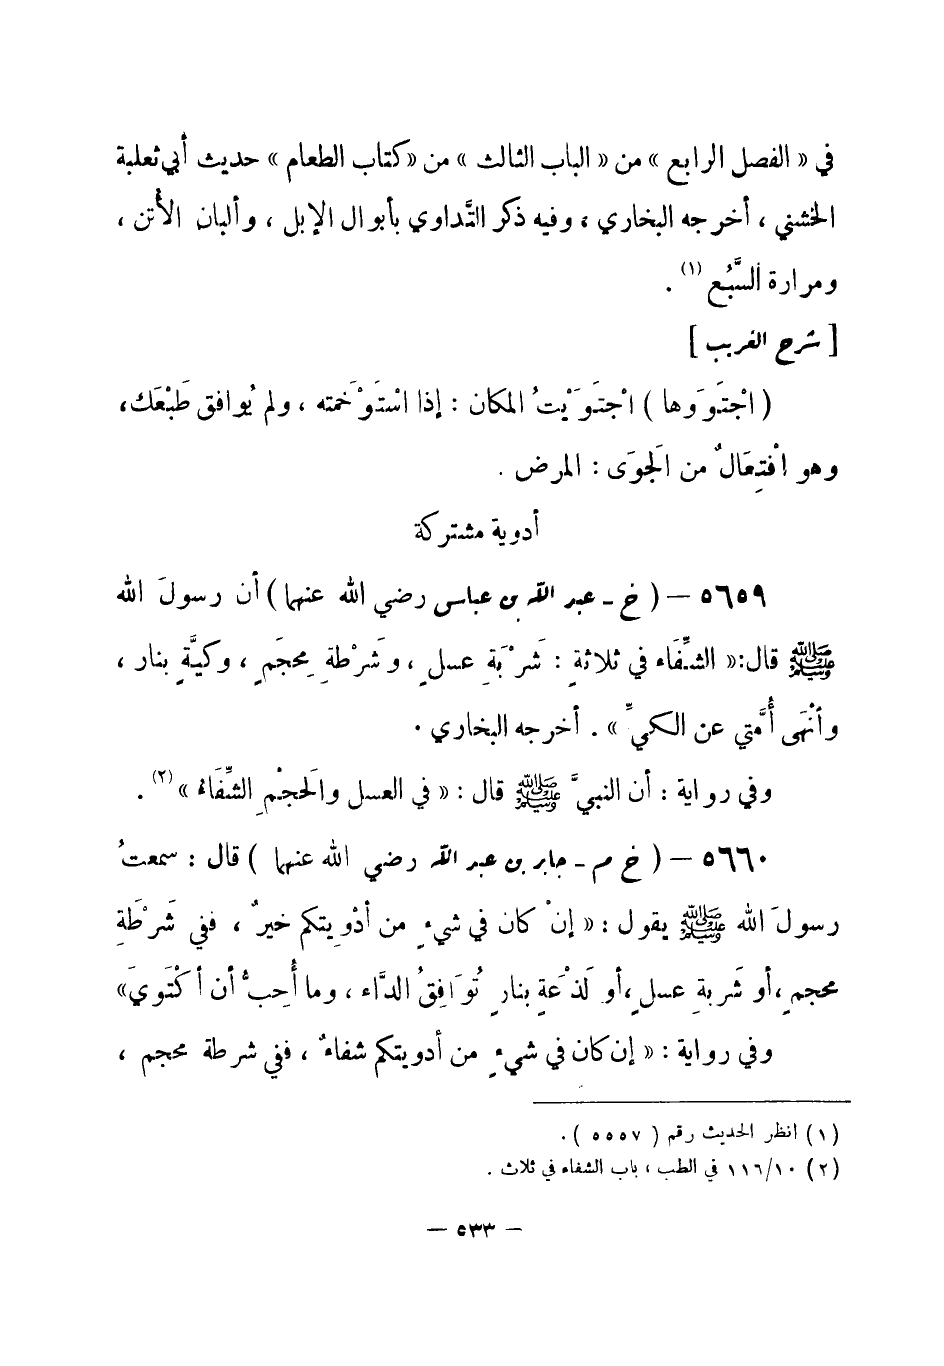 في « الفصل الرابع » من « الباب الثالث » من « كتاب الطعام » حديث أبي ثعلبة
الخشني ، أخرجه البخاري ، وفيه ذكر التَّداوي بأبوال الإبل ، وألبان الأُتن ،
ومرارة السَّبُع (١) .
[ شرح الغريب ]
( اجْتَوَوها ) اجْتَوَيْتُ المكان : إذا اسْتَوْخمته ، ولم يُوافق طَبْعَك،
وهو افْتِعَالٌ من الَجوَى : المرض .
أدوية مشتركة
٥٦٥٩ – ( خ - عبد الله بن عباس رضي الله عنهما ) أن رسولَ الله
ﷺ قال: « الشِّفَاء في ثلاثةٍ : شَرْبَةِ عسلٍ ، وشَرْطةِ مِحجَمٍ ، وكيَّةٍ بنار ،
وأنْهَى أُمَّتي عن الكيِّ » . أخرجه البخاري .
وفي رواية : أن النبيَّ ﷺ قال : « في العسل والَحجْمِ الشِّفَاءُ » (٢) .
٥٦٦٠ – ( خ م - جابر بن عبد الله رضي الله عنهما ) قال : سمعتُ
رسولَ الله ﷺ يقول : « إنْ كان في شيءٍ من أدْوِيتكم خيرٌ ، ففي شَرْطَةِ
محجمٍ ، أو شَربةِ عسلٍ ، أو لَذْعَةٍ بنارٍ تُوَافِقُ الدَّاء ، وما أُحِبُّ أن أكْتَويَ »
وفي رواية : « إن كان في شيءٍ من أدويتكم شفاءٌ ، ففي شرطة محجم ،
(١) انظر الحديث رقم ( ٥٥٥٧ ) .
(٢) ١١٦/١٠ في الطب ، باب الشفاء في ثلاث .
– ٥٣٣ –